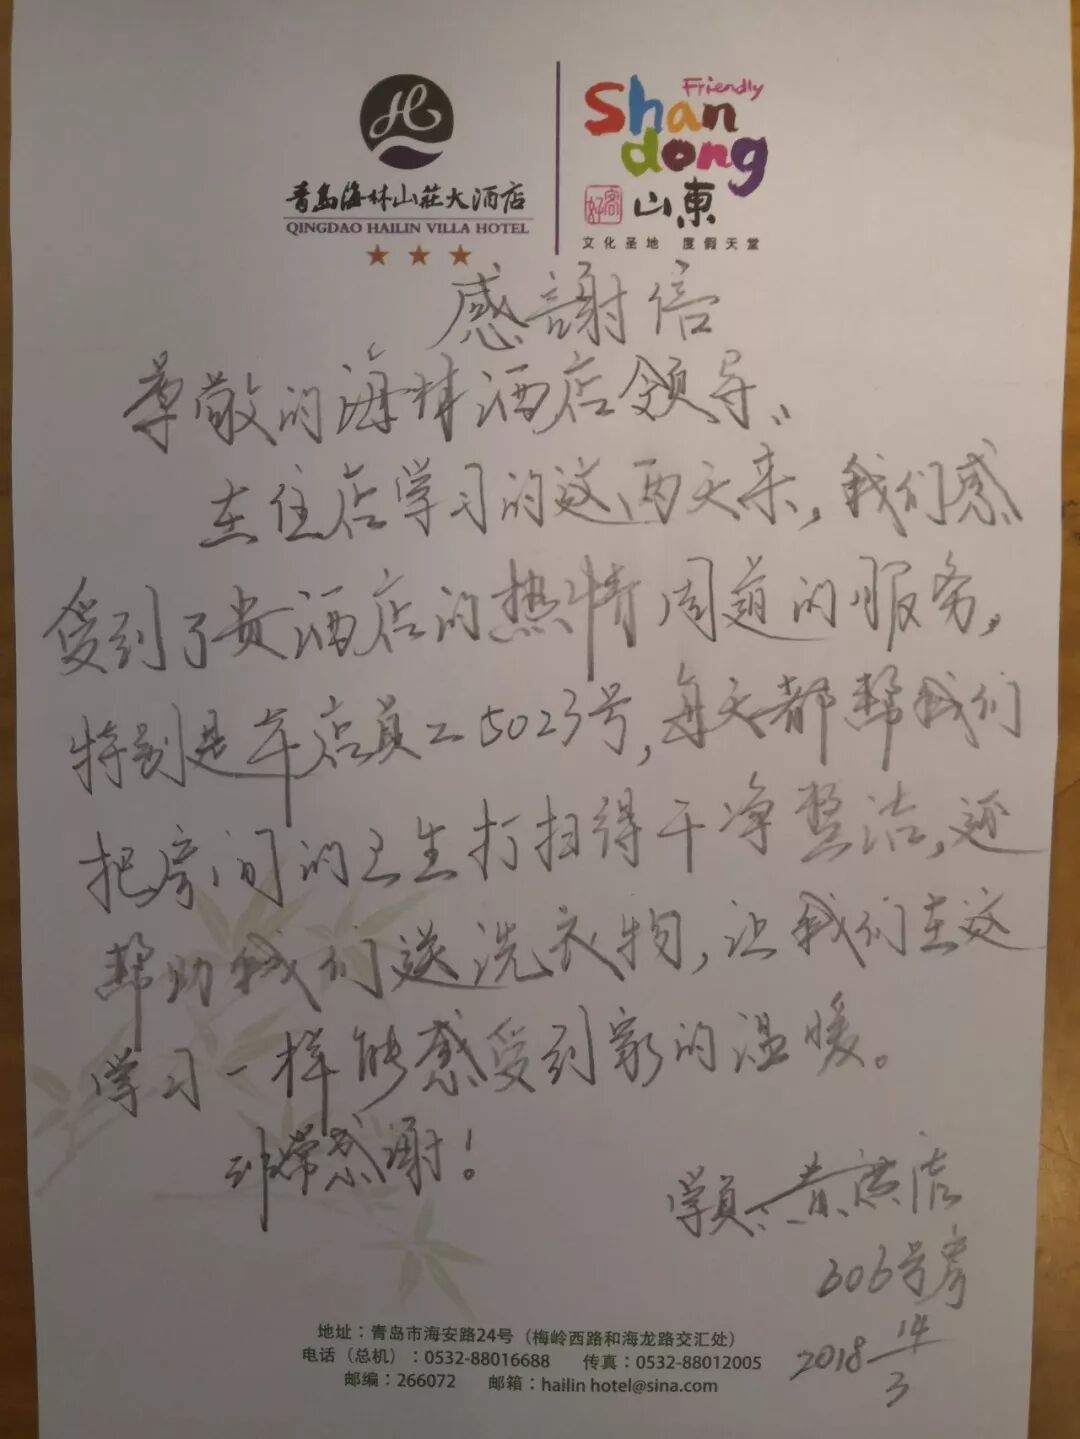 H
青岛海林山莊大酒店
QINGDAO HAILIN VILLA HOTEL
Friendly
Shan
dong
好客
山東
文化圣地 度假天堂
感謝信
尊敬的海林酒店领导:
在住店学习的这两天来，我们感
受到了贵酒店的热情周道的服务，
特别是车店员工5023号，每天都帮我们
把房间的卫生打扫得干净整洁，还
帮助我们送洗衣物，让我们在这
学习一样能感受到家的温暖。
非常感谢！
学员:黄
606号房
2018 14/3
地址：青岛市海安路24号（梅岭西路和海龙路交汇处）
电话（总机）：0532-88016688 传真：0532-88012005
邮编：266072 邮箱：hailin hotel@sina.com